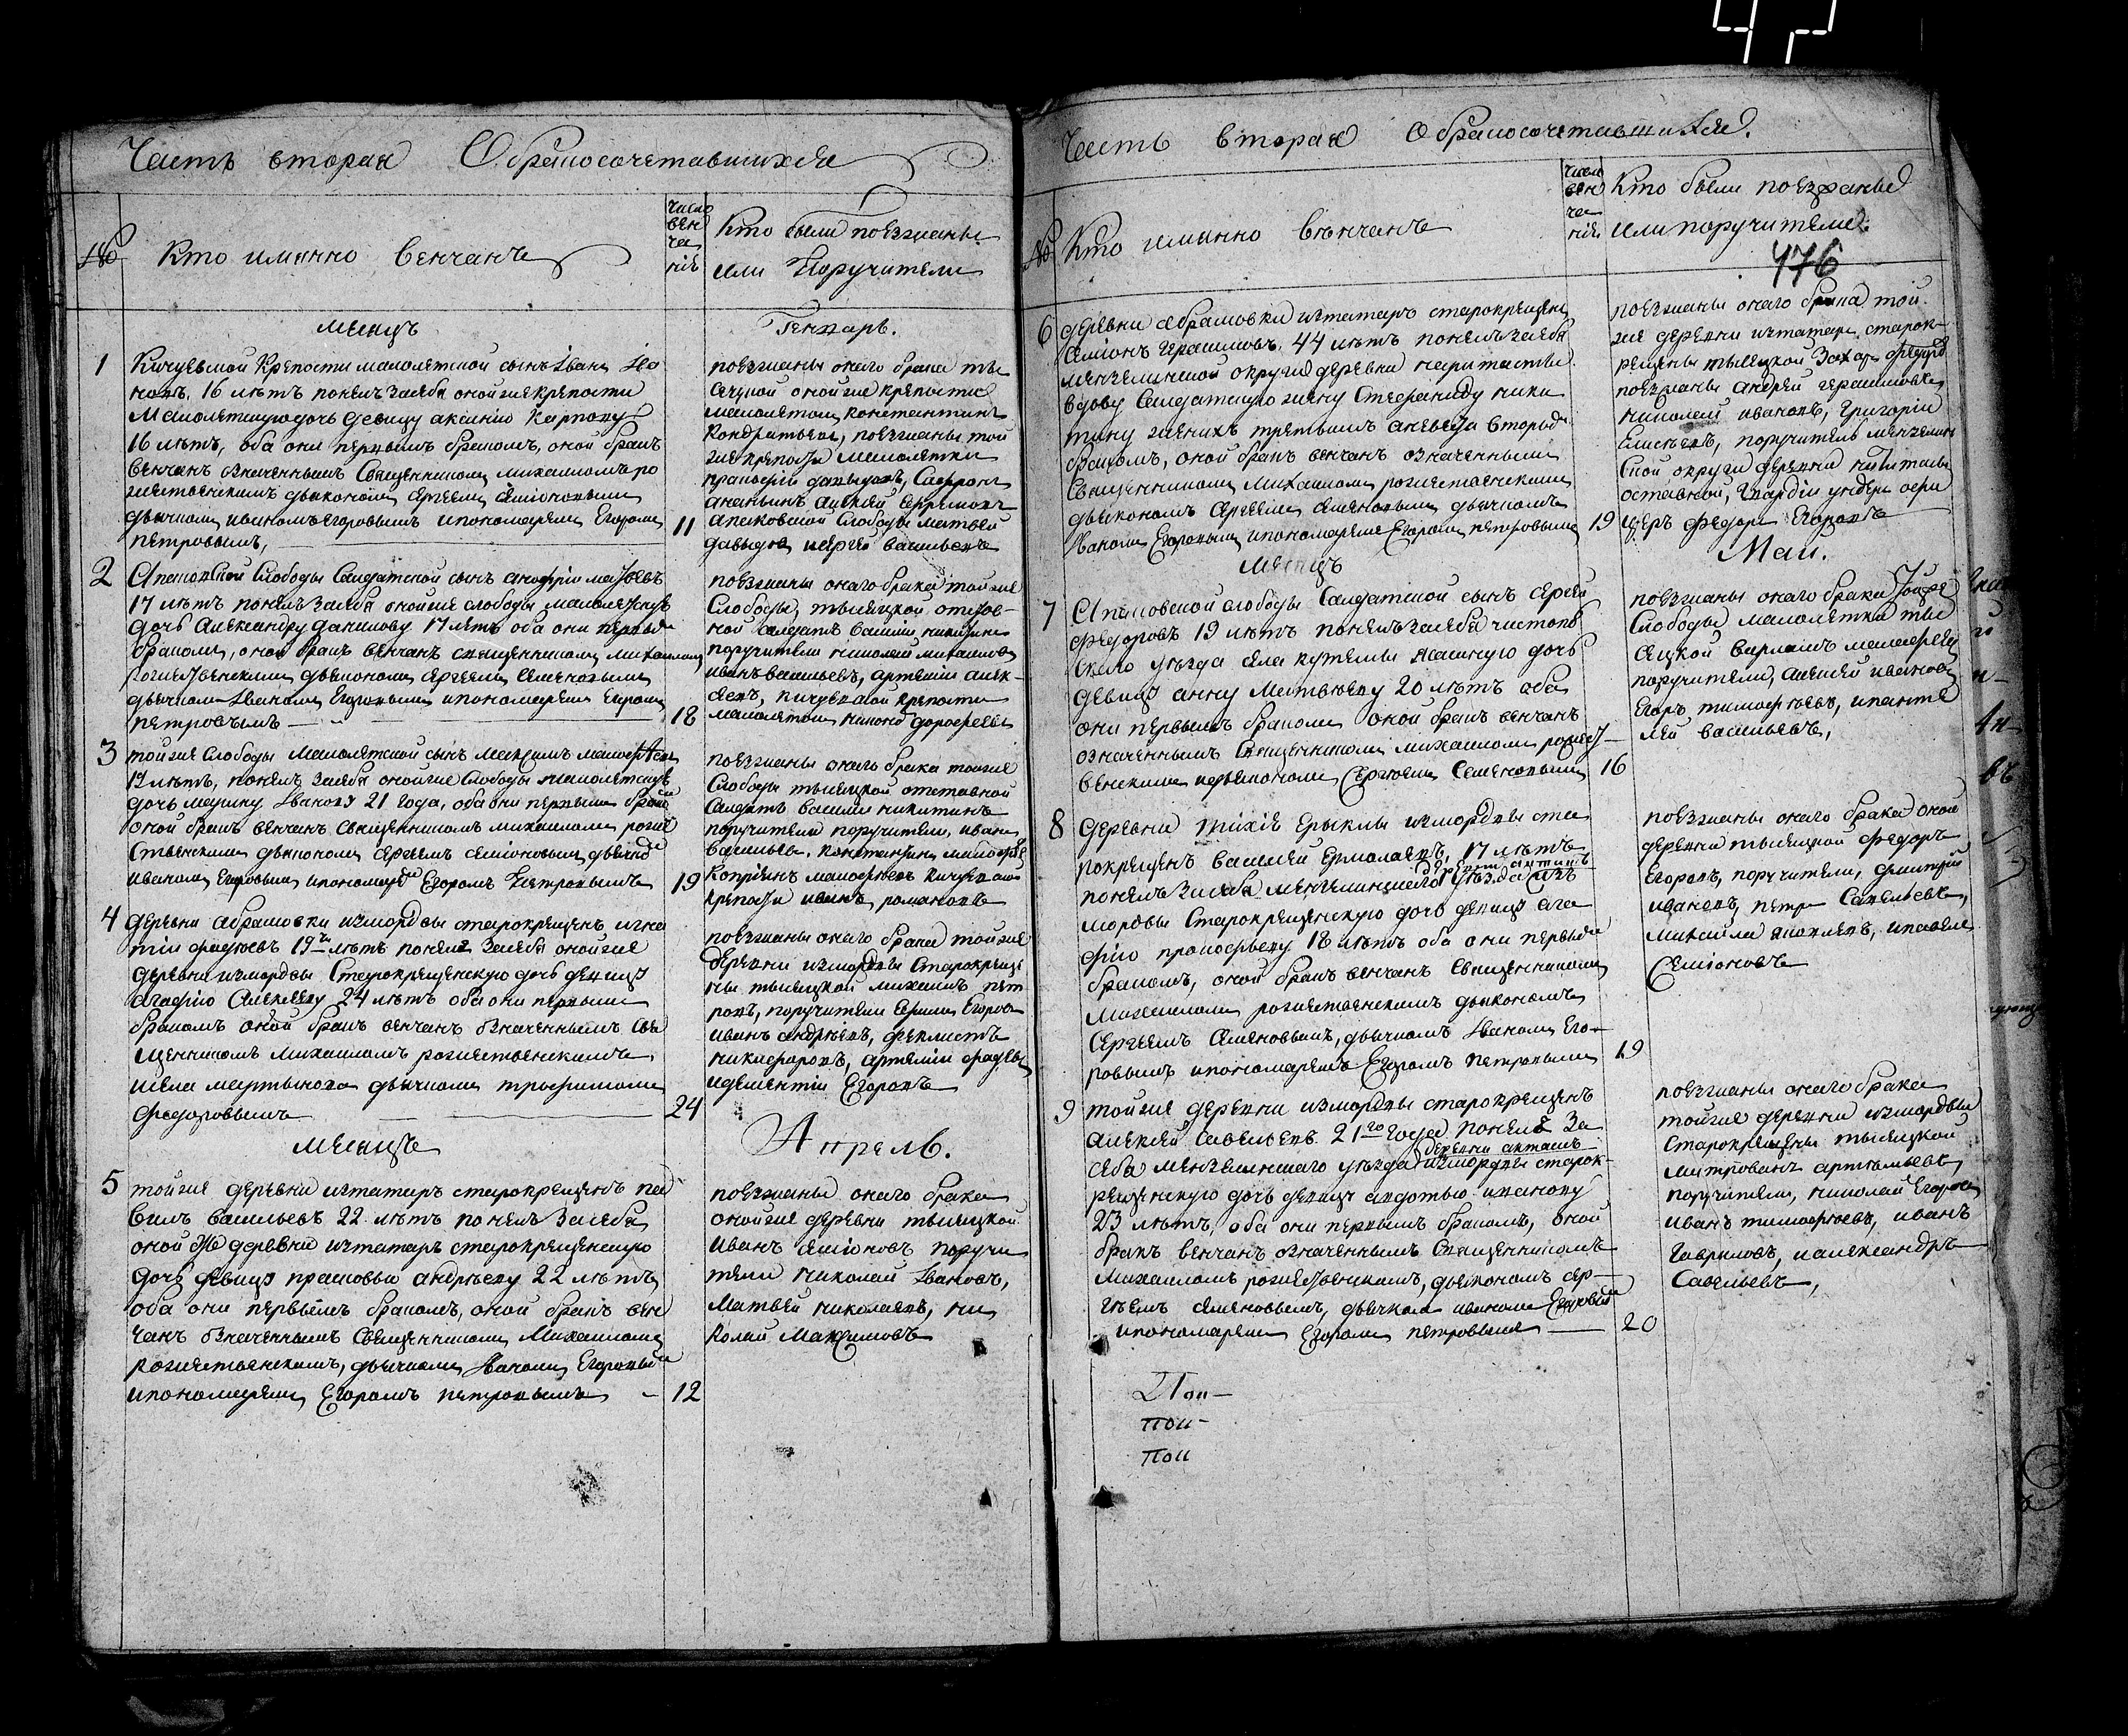 Часть вторая О бракосочетавшихся
№
Кто имянно венчанъ
число
вен
ча
нія
Кто были поезжаны
или Поручители
месяцъ
Генварь.
1
Кичуевской Крепости малолетской сынъ Иванъ Ива
новъ, 16 летъ понелъ засебя онойже крепости
Малолетскую дочь девицу аксинью Карпову
16 летъ, оба они первымъ бракомъ, оной бракъ
венчанъ означеннымъ Священникомъ михаиломъ ро
жественскимъ дьякономъ сергеемъ семіоновымъ
дьячкомъ иваномъ егоровымъ ипономаремъ Егоромъ
петровымъ,
11
поезжаны онаго брака ты
сецкой онойже крепости
малолетокъ константинъ
Кондратьевъ, поезжаны той
же крепости малолетки
давыдовъ,
ананьинъ алексей ефремовъ
слободы матвей
давыдовъ исергей васильевъ
2
слободы Салдатской сынъ
17 летъ понелъ засебя онойже слободы малолетскую
дочь Александру данилову 17 летъ оба они первымъ
бракомъ, оной бракъ венчанъ священникомъ михаиломъ
рожественскимъ дьякономъ сергеемъ семеновымъ
дьячкомъ Иваномъ Егоровымъ ипономаремъ Егоромъ
петровымъ
18
поезжаны онаго брака тойже
Слободы, тысяцкой отстав-
ной салдатъ василій никитинъ
поручители николай михаиловъ
иванъ васильевъ, артемій алек-
сеевъ, кичуевской крепости
малолетокъ дорофеевъ
3
тойже слободы Малолетской сынъ Максимъ
летъ, понелъ засебя онойже Слободы малолетскую
дочь Иванову 21 года, оба они первымъ бракомъ
оной бракъ венчанъ Священникомъ михаиломъ роже
ственскимъ дьякономъ сергеемъ семіоновымъ, дьячкомъ
иваномъ Егоровымъ ипономаремъ Егоромъ Петровымъ
19
поезжаны онаго брака тойже
Слободы тысяцкой отставной
Салдатъ василій никитинъ
поручители поручители, иванъ
васильевъ, константинъ
крепости иванъ романовъ
4
деревни абрамовки измордвы старокрещенъ игна
тій фадеевъ 19ти летъ понелъ засебя онойже
деревни измордвы Старокрещенскую дочь девицу
агафію Алексееву 24 летъ оба они первымъ
бракомъ оной бракъ венчанъ означеннымъ Свя
щенникомъ михаиломъ рожественскимъ
мартынова дьячкомъ трофимомъ
федоровымъ
24
поезжаны онаго брака тойже
деревни измордвы Старокреще
ны тысяцкой михаилъ пет
ровъ, поручители Егоровъ
иванъ андреевъ, феклистъ
никифоровъ, артемій фадеевъ
идементій Егоровъ
месяцъ
Апрель.
5
тойже деревни изтатаръ старокрещенъ па
велъ васильевъ 22 летъ понелъ засебя
оной же деревни изтатаръ старокрещенскую
дочь девицу прасковью андрееву 22 летъ,
оба они первымъ бракомъ, оной бракъ вен
чанъ означеннымъ Священникомъ Михаиломъ
рожественскимъ, дьячкомъ Иваномъ Егоровымъ
ипономаремъ Егоромъ петровымъ
12
поезжаны онаго брака
онойже деревни тысяцкой
Иванъ семіоновъ поручи
тели николай Ивановъ,
Матвей николаевъ, ни
колай Максимовъ
Часть вторая О бракосочетавшихся.
№
Кто имянно венчанъ
число
вен
ча
нія
Кто были поезжаны
или поручители.
476
6
деревни абрамовки изтатаръ старокрещенъ
семіонъ герасимовъ 44 летъ понелъ засебя
мензелинской округи деревни
вдову Салдатскую жену Степаниду ники
тину женихъ третьимъ аневеста вторымъ
бракомъ, оной бракъ венчанъ означеннымъ
Священникомъ Михаиломъ рожественскимъ
дьякономъ сергеемъ семеновымъ дьячкомъ
Иваномъ Егоровымъ ипономаремъ Егоромъ петровымъ
19
поезжаны онаго брака той-
же деревни изтатаръ старок-
рещены тысяцкой Захаръ федоровъ
поезжаны андрей герасимовъ
николай ивановъ, григорій
поручитель мензелин
ской округи деревни
отставной, гвардіи ундеръ офи
церъ федоръ Егоровъ
Месяцъ
Май.
7
слободы Салдатской сынъ сергей
федоровъ 19 летъ понелъ засебя чистопо
скаго уезда села дочь
девицу анну Матвееву 20 летъ оба
они первымъ бракомъ оной бракъ венчанъ
означеннымъ Священникомъ михаиломъ рожест-
венскимъ идьякономъ Сергеемъ Семеновымъ
16
поезжаны онаго брака тойже
Слободы малолетки ты
сяцкой
поручители, алексей ивановъ
Егоръ тимофеевъ, ипанте
лей васильевъ,
8
деревни тихія Ерыклы измордвы ста
рокрещенъ василей Ермолаевъ, 17 летъ
понелъ засебя мензелинскаго уезда деревни акташъ изъ
мордвы Старокрещенскую дочь девицу ага
фію прокофьеву 18 летъ оба они первымъ
бракомъ, оной бракъ венчанъ Священникомъ
Михаиломъ рожественскимъ дьякономъ
Сергеемъ Семеновымъ, дьячкомъ Иваномъ Его-
ровымъ ипономаремъ Егоромъ петровымъ
19
поезжаны онаго брака оной
деревни тысяцкой федоръ
Егоровъ, поручители, дмитрій
ивановъ, петръ Савельевъ,
михайла яковлевъ, ипавелъ
Семіоновъ
9
тойже деревни измордвы старокрещенъ
алексей савельевъ 21го года понелъ за
себя мензелинскаго уезда деревни акташъ измордвы старок-
рещенскую дочь девицу авдотью иванову
23 летъ, оба они первымъ бракомъ, оной
бракъ венчанъ означеннымъ Священникомъ
Михаиломъ рожественскимъ, дьякономъ сер-
геемъ семеновымъ, дьячкомъ иваномъ Егоровымъ
ипономаремъ Егоромъ петровымъ
20
поезжаны онаго брака
тойже деревни измордвы
Старокрещены тысяцкой
митрофанъ артемьевъ
поручители, николай Егоровъ
иванъ тимофеевъ, иванъ
Гавриловъ, иалександръ
Савельевъ,